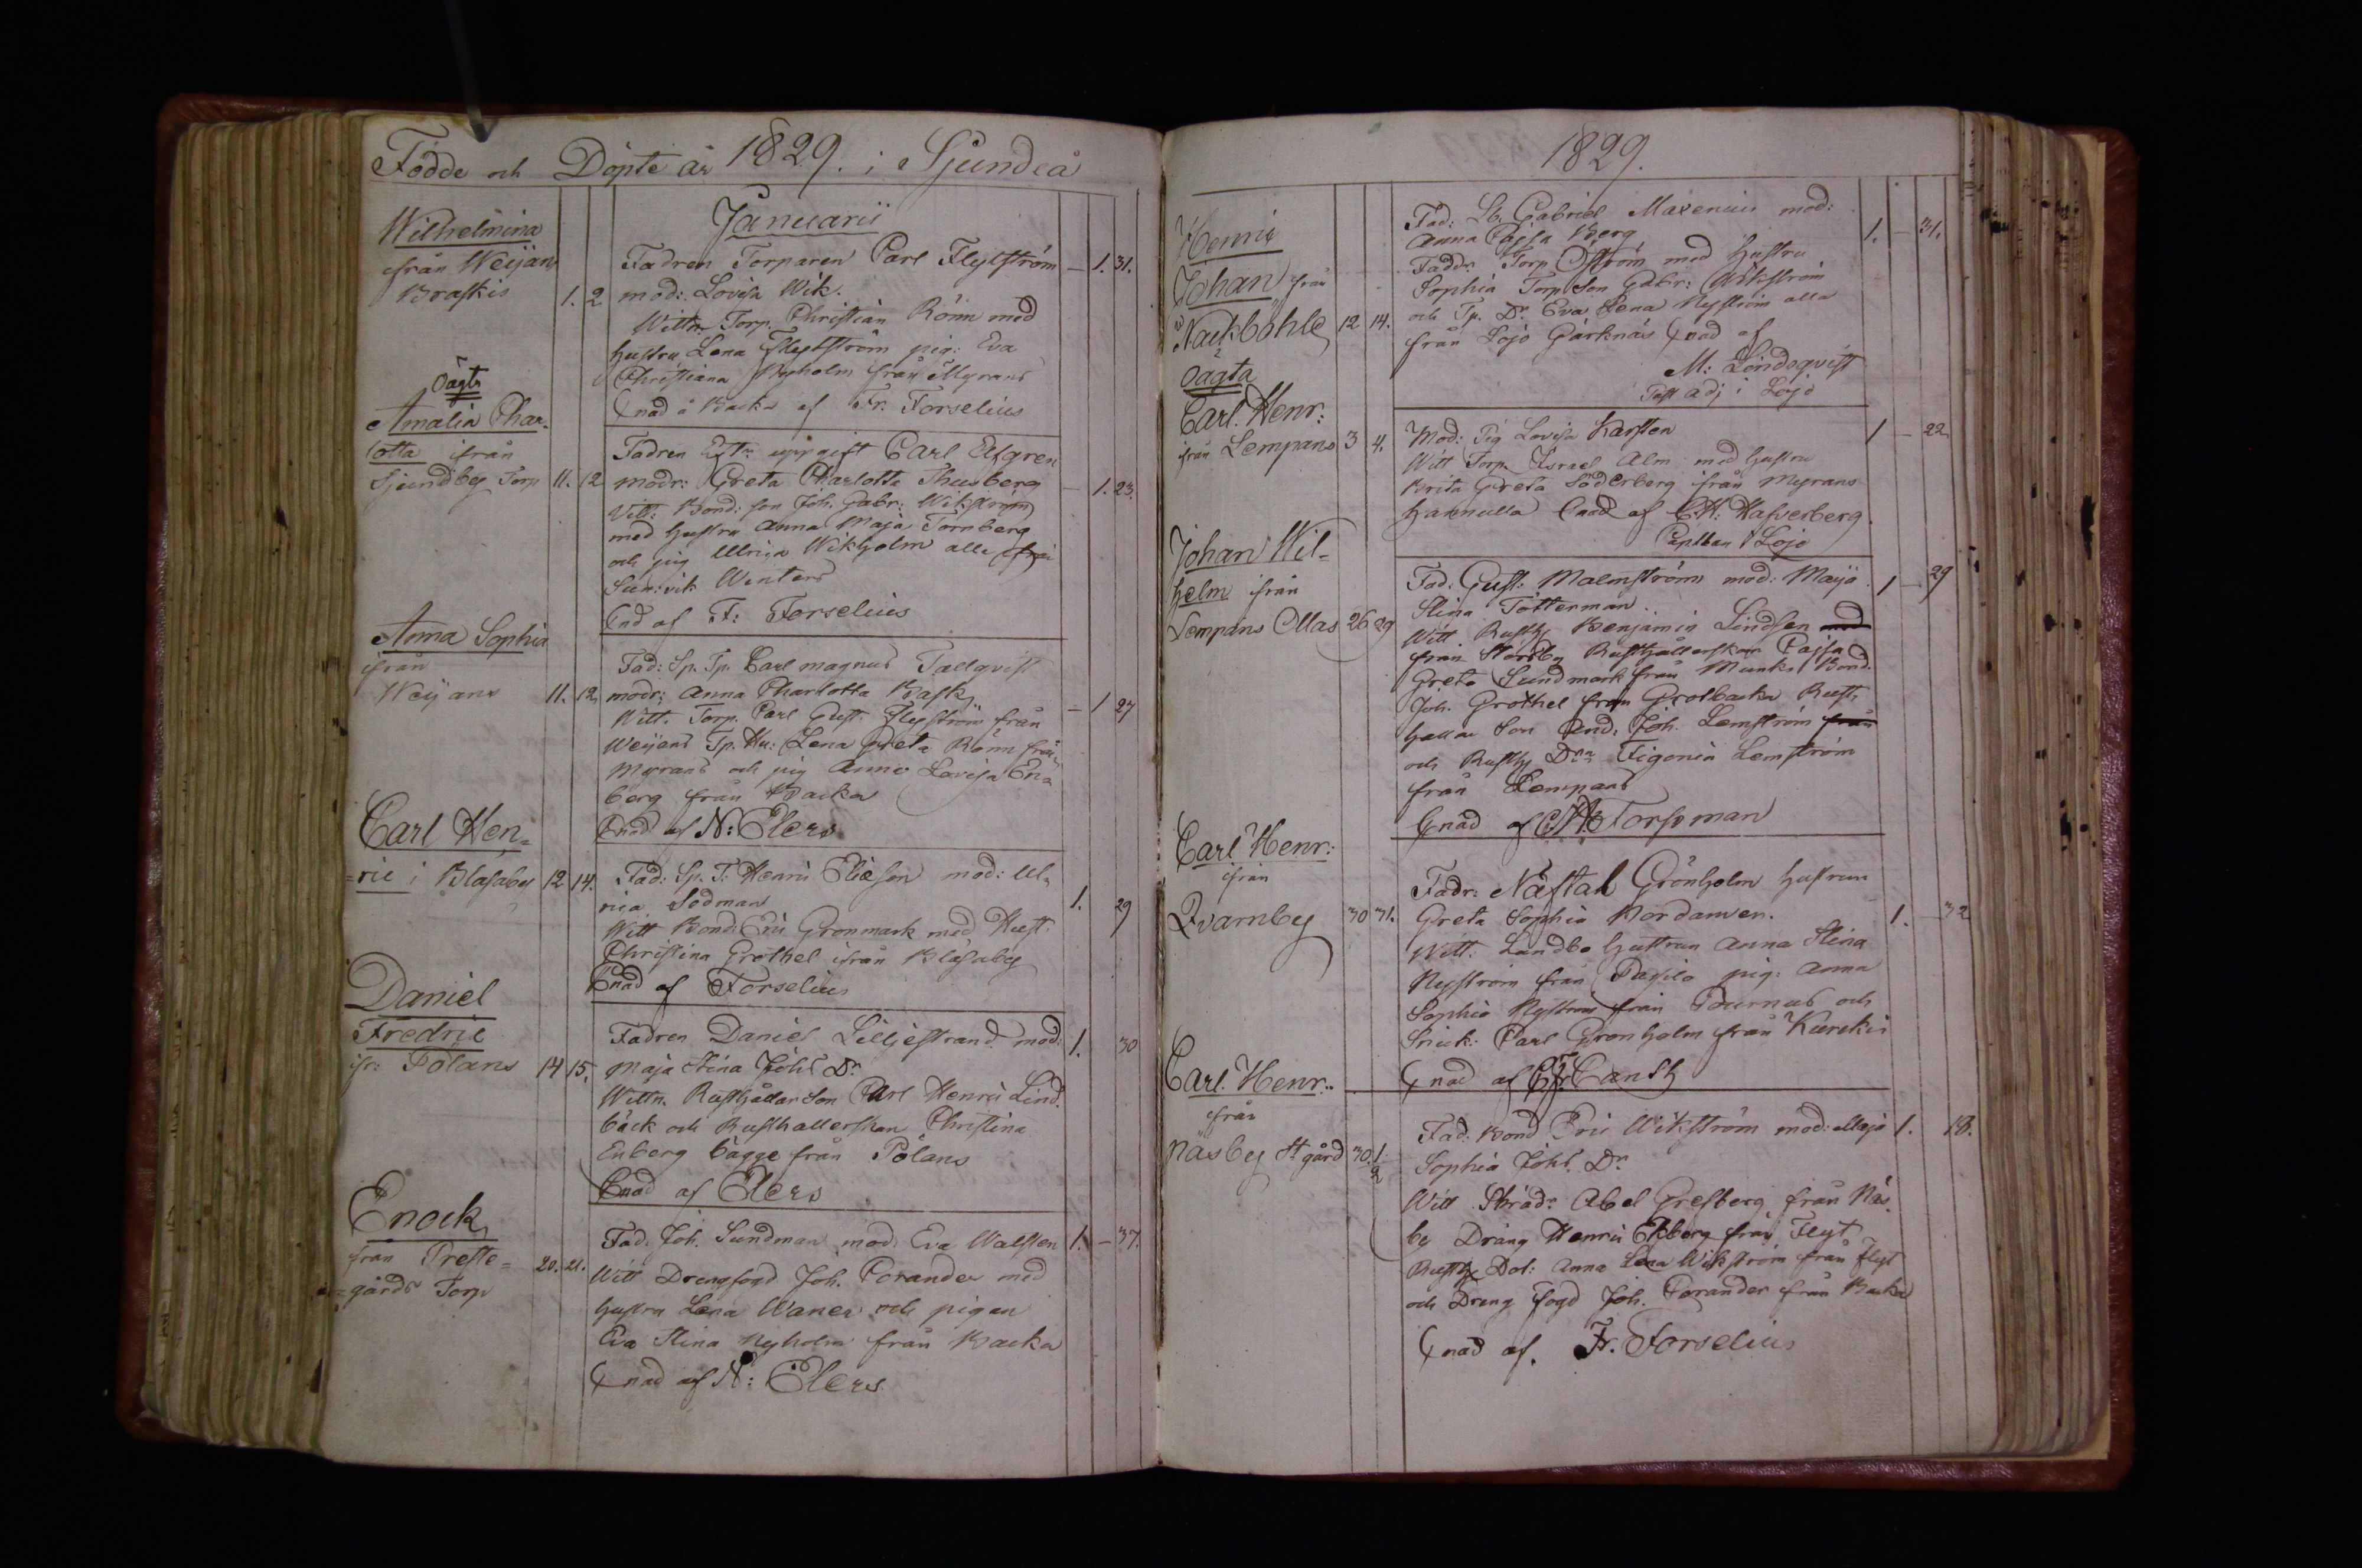 Födde och Döpte år 1829. i Sjundeå
Januarii
Wilhelmina
från Weijans
Braskis 1. 2
Fadren Torparen Carl Flytström — 1. 31.
mod: Lovisa Wik.
Wittn. Torp. Christian Rönn med
hustru Lena Flytström pig: Eva
Christiana Nyholm från Myrans
Cnad å Backa af Fr. Forselius
Oägta
Amalia Char-
lotta från
Sjundby Torp 11. 12
Fadren Eft. uppgift Carl Elfgren
modr: Greta Charlotta Thusberg — 1. 23.
Vitt: Bond: son Joh. Gabr: Wikström
med hustru Anna Maja Tornberg
och pig Ulrica Wikholm alla från
Sunnvik Winters
Cnd af F: Forselius
Anna Sophia
ifrån
Weijans 11. 12
Fad: Sp. Tp. Carl Magnus Tallqvist
modr: Anna Charlotta Bask — 1 27
Witt. Torp. Carl Gust. Flytström från
Weijans Tp. Hu: Lena Greta Rönn från
Myrans och pig Anna Lovisa En-
berg från Backa
Cnad af N: Elers
Carl Hen=
=ric i Blasaby 12 14.
Fad: Sp. T: Henric Eliæson mod: Ul-
rica Sodman 1. 29
Witt Bond: Eric Gronmark med Hust.
Christina Grothel ifrån Blåsaby
Cnad af Forselius
Daniel
Fredric
ifr: Pölans 14 15.
Fadren Daniel Liljestrand mod: 1. 30
Maja Stina Johs Dr
Wittn. Rusthållar Son Carl Henric Lind-
bäck och Rusthallerskan Christina
Enberg bägge från Pölans
Cnad af Elers
Enock
från Preste=
=gårds Torp 20. 21.
Fad. Joh. Sundman mod. Eva Walsten 1. — 37.
Witt Drengfogd Joh. Corander med
hustru Lena Waner och pigan
Eva Stina Nyholm från Backa
Cnad af N: Elers
1829.
Henric
Johan från
Nackböhle 12 14.
Fad: Sb. Gabriel Maxenius mod:
Anna Cajsa Berg 1. — 31.
Faddr. Torp Öström med hustru
Sophia Torp Son Gabr: Wikström
och Tp. Dr. Eva Lena Nyström alla
från Lojo Gärknäs Cnad af
M: Lindsqvist
Past adj i Lojo
Oägta
Carl. Henr:
från Lempans 3 4.
Mod: Pig Lovisa Karsten 1 — 22
Witt Torp. Israel Alm med hustru
Brita Greta Söderberg från Myrans
Hannulla Cnad af C.H: Hafverberg.
Captban i Lojo
Johan Wil-
helm från
Lempans Ollas 26 29
Fad: Gust: Malmström mod: Maja 1 — 29
Stina Tötterman.
Witt. Rusth Benjamin Lindsen med
från Störsby Rusthållerskan Cajsa
Greta Sundmark från Munks Bond.
Joh. Grothel från Grotbacka Rusth
hallar Son And: Joh. Lemström från
och Rusth Dra Figonia Lemström
från Lempans
Cnad af Forssman
Carl Henr:
ifrån
Qvarnby 30 31.
Fadr: Näftal Grönholm hustrun
Greta Sophia Nordanven. 1. — 32
Witt: Landbo hustrun Anna Stina
Nyström från Pasila pig: Anna
Sophia Nyström från Purnus och
Snick: Carl Gronholm från Kurckis
Cnad af Canth
Carl. Henr..
från
Näsby St gård 30. 1
2
Fad: Bond Eric Wikström mod: Maja 1. 18.
Sophia Johs. Dr
Witt Skräd: Abel Gresberg från Näs-
by Dräng Henric Ekberg från Flyt
Rusth Dot: Anna Lena Wikström från Flyt
och Dreng fogd Joh. Corander från Backa
Cnad af. Fr. Forselius